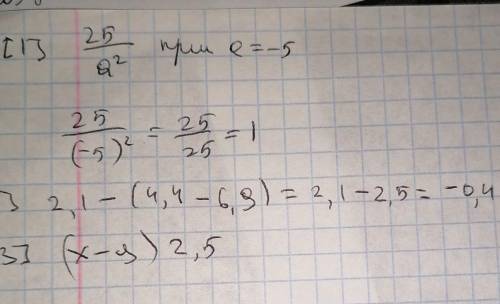 [1] 25/a² при a = -5
25/(-5)² = 25/25 = 1
] 2,1 - (4,4 - 6,9) = 2,1 - 2,5 = -0,4
3] (x - y) 2,5